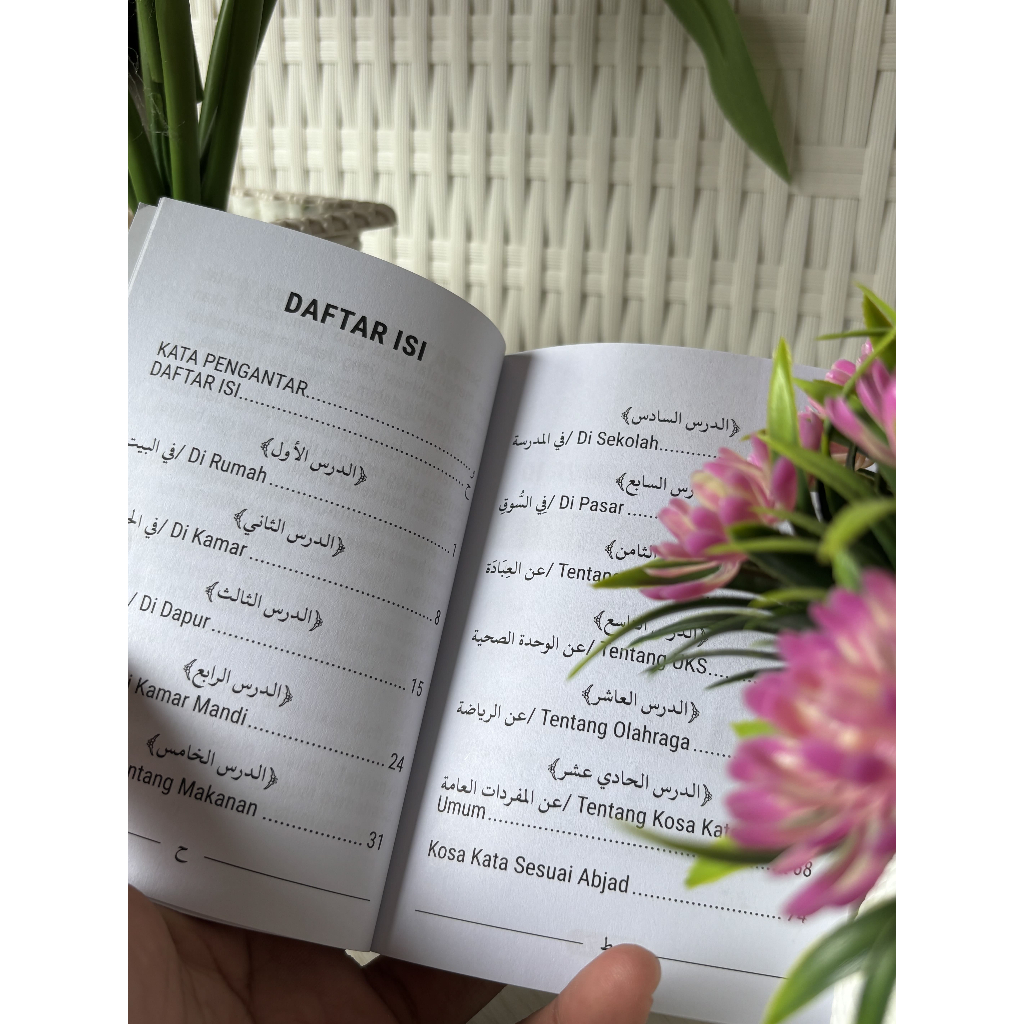 DAFTAR ISI
KATA PENGANTAR
DAFTAR ISI
﴿الدرس الأول﴾
في البيت/ Di Rumah 1
﴿الدرس الثاني﴾
في / Di Kamar 8
﴿الدرس الثالث﴾
/ Di Dapur 15
﴿الدرس الرابع﴾
Kamar Mandi 24
﴿الدرس الخامس﴾
Makanan 31
ح
﴿الدرس السادس﴾
في المدرسة/ Di Sekolah
السابع﴾
فِي السُّوقِ/ Di Pasar
الثامن﴾
عن العِبَادَة/
﴿الدرس التاسع﴾
عن الوحدة الصحية/ Tentang UKS
﴿الدرس العاشر﴾
عن الرياضة/ Tentang Olahraga
﴿الدرس الحادي عشر﴾
عن المفردات العامة/ Tentang Kosa
Umum 68
Kosa Kata Sesuai Abjad 74
ط